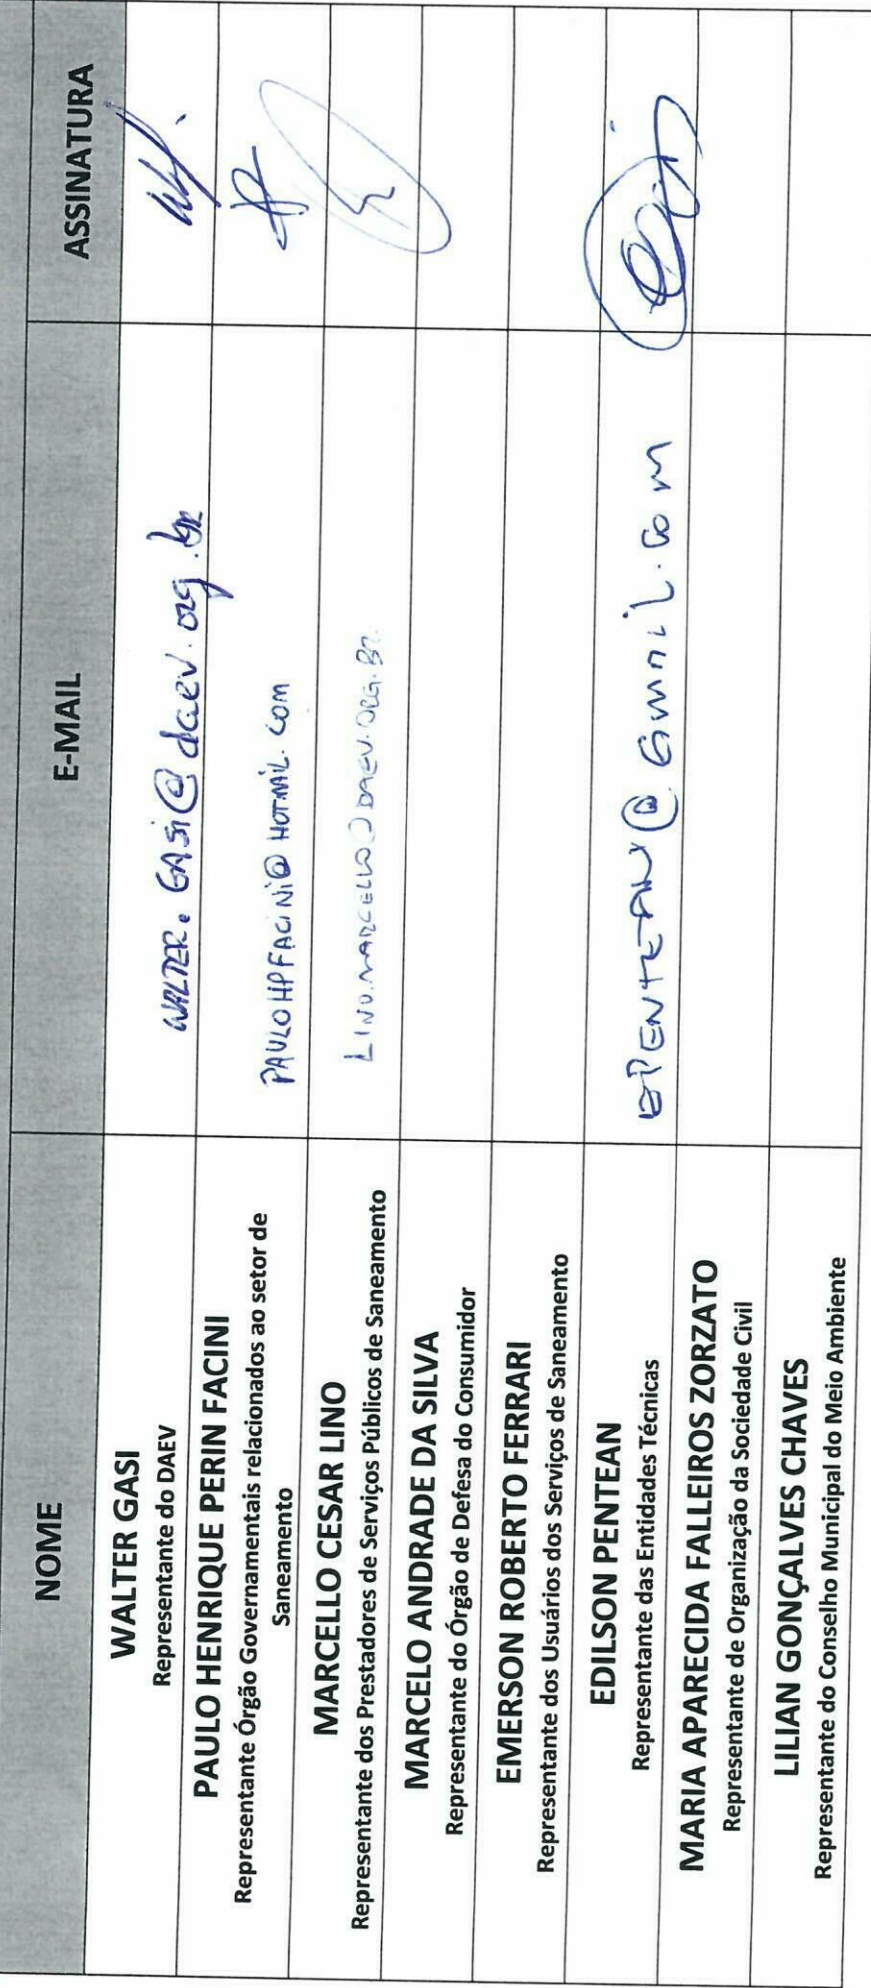 NOME
E-MAIL
ASSINATURA
WALTER GASI
Representante do DAEV
WALTER.GASI@daev.org.br
PAULO HENRIQUE PERIN FACINI
Representante Órgão Governamentais relacionados ao setor de
Saneamento
PAULOHPFACINI@HOTMAIL.COM
MARCELLO CESAR LINO
Representante dos Prestadores de Serviços Públicos de Saneamento
LINO.MARCELLO@DAEV.ORG.BR.
MARCELO ANDRADE DA SILVA
Representante do Órgão de Defesa do Consumidor
EMERSON ROBERTO FERRARI
Representante dos Usuários dos Serviços de Saneamento
EDILSON PENTEAN
Representante das Entidades Técnicas
EPENTEAN@Gmail.com
MARIA APARECIDA FALLEIROS ZORZATO
Representante de Organização da Sociedade Civil
LILIAN GONÇALVES CHAVES
Representante do Conselho Municipal do Meio Ambiente